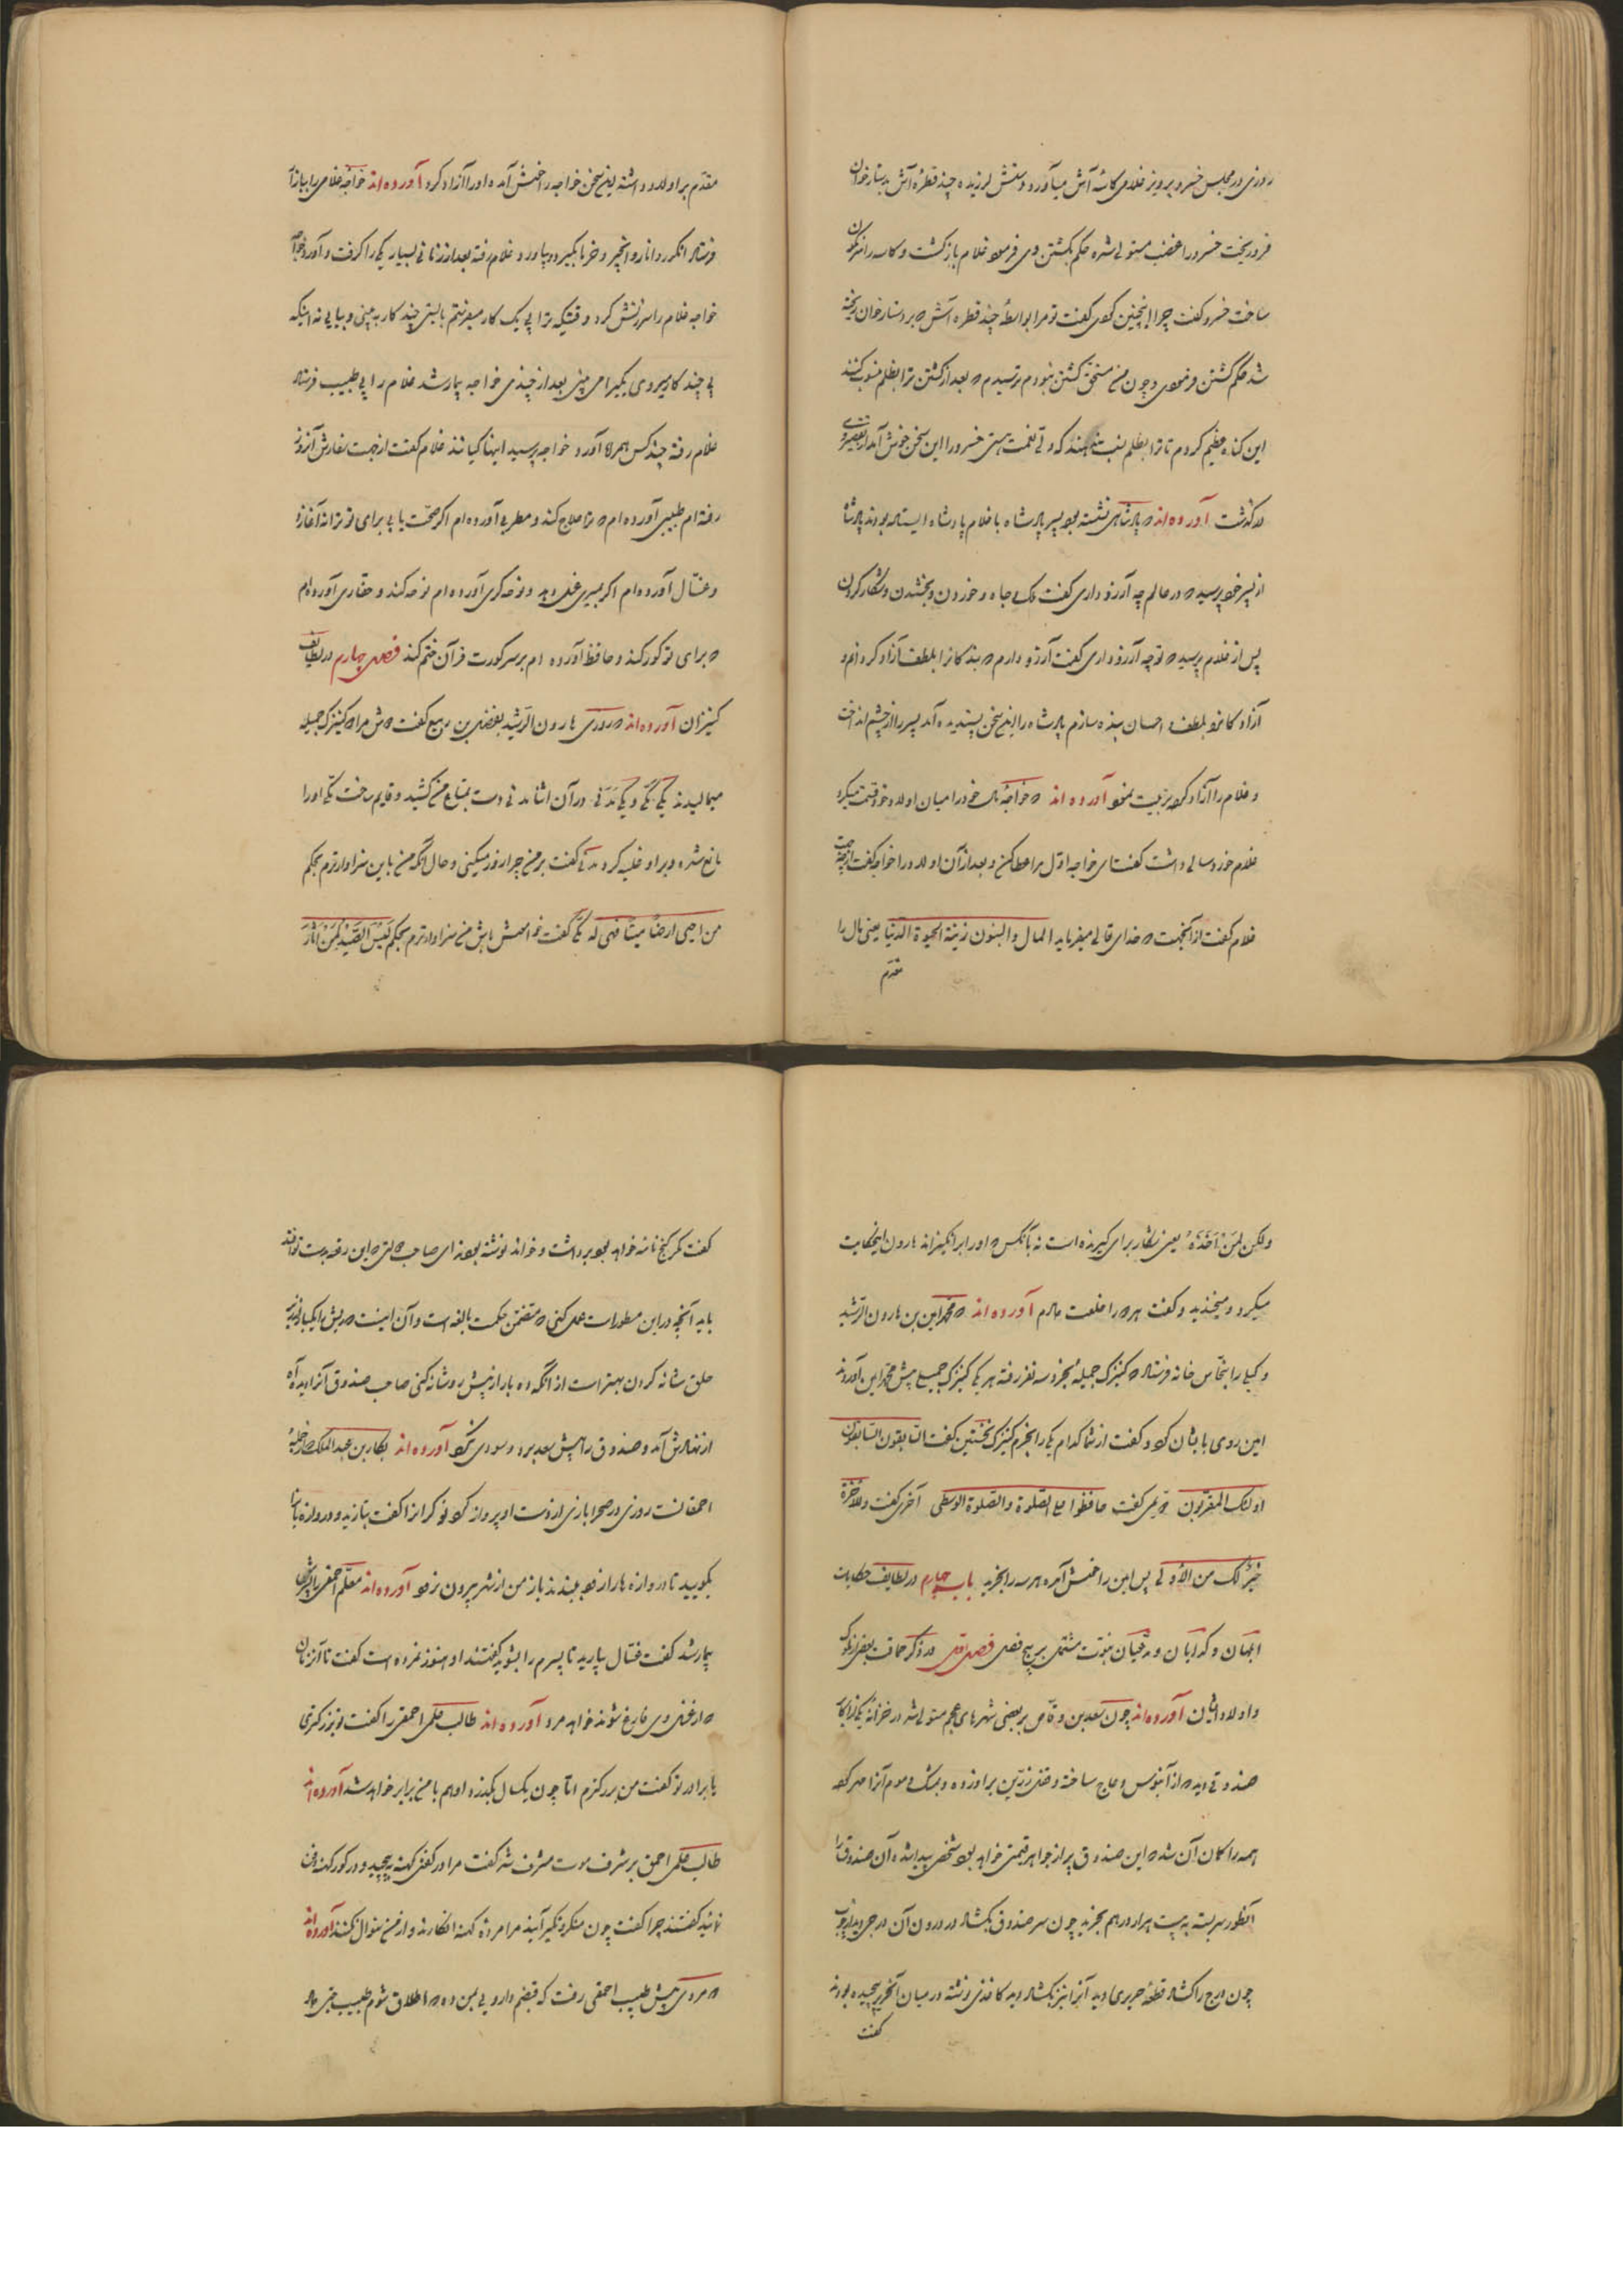 روزی در مجلس خسرو پرویز غلامی کاسهٔ آش میآورد و دستش لرزیده چند قطره آش بدستارخوان
فرو ریخت خسرو را غضب مستولی شده حکم بکشتن وی فرمود غلام بازگشت و کاسه را نگون
ساخت خسرو گفت چرا اینچنین کردی گفت تو مرا بواسطهٔ چند قطره آش که بر دستارخوان ریخته
شد حکم کشتن فرمودی و چون من مستحق کشتن نبودم ترسیدم که بعد از کشتن ترا بظلم منسوب کنند
این گناه عظیم کردم تا ترا بظلم نسبت ندهند که ولی نعمت هستی خسرو را این سخن خوش آمد از تقصیر وی
در گذشت آورده‌اند که پادشاهی نشسته بود پسر پادشاه با غلام پادشاه ایستاده بودند پادشاه
از پسر خود پرسید که در عالم چه آرزو داری گفت ملک و جاه و خوردن و بخشیدن و شکار کردن
پس از غلام پرسید که تو چه آرزو داری گفت آرزو دارم که بندکانرا بلطف آزاد کردانم و
آزادکانرا بلطف و احسان بنده سازم پادشاه را این سخن پسندیده آمد پسر را از چشم انداخت
و غلام را آزاد کرده تربیت نمود آورده‌اند که خواجه مال خود را میان اولاد خود قسمت میکرد
غلام خورد سالی داشت گفت ای خواجه اول مرا عطا کن و بعد از آن اولاد را خواجه گفت از چه جهت
غلام گفت از آنجهت که خدای تعالی میفرماید المال والبنون زینة الحیوة الدنیا یعنی مال را
مقدم
مقدم بر اولاد داشته این سخن خواجه را خوش آمده او را آزاد کرد آورده‌اند خواجه غلامی را ببازار
فرستاد انکور و انار و انجیر و خرما بگیرد و بیاورد غلام رفته بعد از زمانی بسیار یکی را گرفت و آورد خواجه
خواجه غلام را سرزنش کرد و قتیکه ترا پی یک کار میفرستم بایستی چند کار به بینی و بیایی نه اینکه
پی چند کار میروی یکیرا می بینی بعد از چندی خواجه بیمار شد غلام را پی طبیب فرستاد
غلام رفته چند کس همراه آورد خواجه پرسید اینها کیانند غلام گفت از جهت سفارش آنروز
رفته‌ام طبیبی آورده‌ام که ترا علاج کند و مطربی آورده‌ام اکر صحّت یابی برای تو ترانه آغازد
و غسّال آورده‌ام اکر بمیری غسل دهد و نوحه‌گری آورده‌ام نوحه کند و حفاری آورده‌ام
که برای تو گور کند و حافظ آورده‌ام بر سر کورت قرآن ختم کند فصل چهارم در لطایف
کنیزان آورده‌اند که روزی هارون الرشید بفضل بن ربیع گفت دوش مرا دو کنیزک جمیله
میمالیدند یکی مکی و یکی مدنی در آن اثنا مدنی دست بمتاع من کشید و قایم ساخت مکی او را
مانع شده و بر او غلبه کرد مدنی گفت بر من چرا زور میکنی و حال آنکه من باین سزاوارترم بحکم
من احیی ارضا میتا فهی له مکی گفت خاموش باش من سزاوارترم بحکم لیس الصید لمن اثار
ولکن لمن اخذه یعنی شکار برای گیرنده است نه بآنکس که او را برانگیزاند هارون اینحکایت
میکرد و میخندید و گفت هر دو را خلعت دادم آورده‌اند که محمد امین بن هارون الرشید
وکیلی را بنخّاس خانه فرستاد که کنیزک جمیله بخرد سه نفر رفته هر یکی کنیزک جمیله پیش محمد امین آوردند
امین روی بایشان کرد و گفت از شما کدام یکی را بخرم کنیزک نخستین گفت السابقون السابقون
اولئک المقربون دویمی گفت حافظوا علی الصلوة والصلوة الوسطی آخری گفت وللآخرة
خیر لک من الاولی پس امین را خوش آمده هر سه را بخرید باب چهارم در لطایف حکایات
ابلهان و گدایان و مدعیان نبوّت مشتمل بر پنج فصل فصل اول در ذکر حماقت بعضی از ملوک
و اولاد ایشان آورده‌اند چون سعد بن وقاص بر بعضی شهرهای عجم مستولی شد در خزانه یکی از اکابر
صندوقی دید که از آبنوس و عاج ساخته و قفل زرّین بر او زده و بمشک و موم آنرا مهر کرده
همه را کمان آن شد که این صندوق پر از جواهر قیمتی خواهد بود شخصی پیدا شده آن صندوق را
آنطور سربسته به بیست هزار درهم بخرید چون سر صندوق بکشاد در درون آن درجی دید از چوب
چون درج را کشاد قطعهٔ حریری دید آنرا نیز بکشاد دید کاغذی نوشته در میان آنحریر پیچیده بودند
گفت
گفت مگر گنج نامه خواهد بود برداشت و خواند نوشته بود ای صاحب دولتی که این رقعه بدست تو افتد
باید آنچه در این مسطورات عمل کنی که متضمن حکمت بالغه است و آن اینست که ریش را یکبار از زیر
حلق شانه کردن بهتر است از آنکه ده بار از پیش رو شانه کنی صاحب صندوق آنرا دید آه
از نهادش بر آمد و صندوق را پیش سعد برد و سودی نکرد آورده‌اند بکار بن عبد الملک که از جمله
احمقانست روزی در صحرا بازی از دست او پرواز کرد نوکرانرا گفت بتازید و دروازه بانانرا
بگویید تا دروازه‌ها را زود ببندند باز من از شهر بیرون نرود آورده‌اند معلم احمقی را پسرش
بیمار شد گفت غسّال بیارید تا پسرم را بشوید گفتند او هنوز نمرده است گفت تا آنزمان
که از غسل وی فارغ شوند خواهد مرد آورده‌اند طالب علمی احمقی را گفت تو بزرگتری
یا برادر تو گفت من بزرگترم امّا چون یکسال بگذرد او هم با من برابر خواهد شد آورده‌اند
طالب علمی احمق بر شرف موت مشرف شد گفت مرا در کفن کهنه پیچید و در کور کهنه دفن
نمائید گفتند چرا گفت چون منکر و نکیر آیند مرا مردهٔ کهنه انگارند و از من سوال نکنند آورده‌اند
که مردی پیش طبیب احمقی رفت که قبضم دارویی بمن ده که اطلاق شوم طبیب